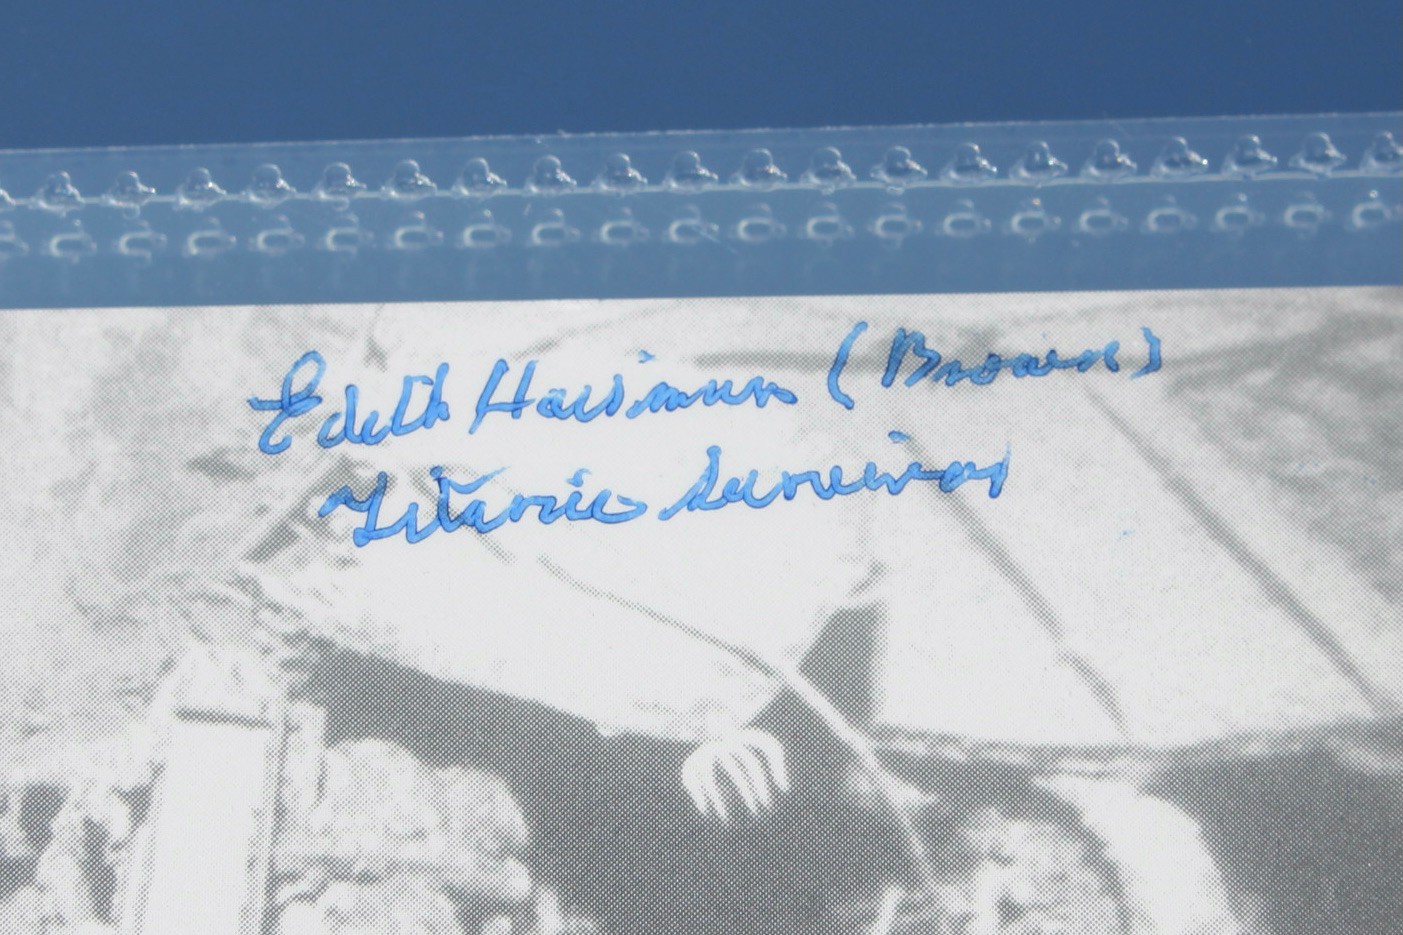 Edith Haisman (Brown)
Titanic Survivor